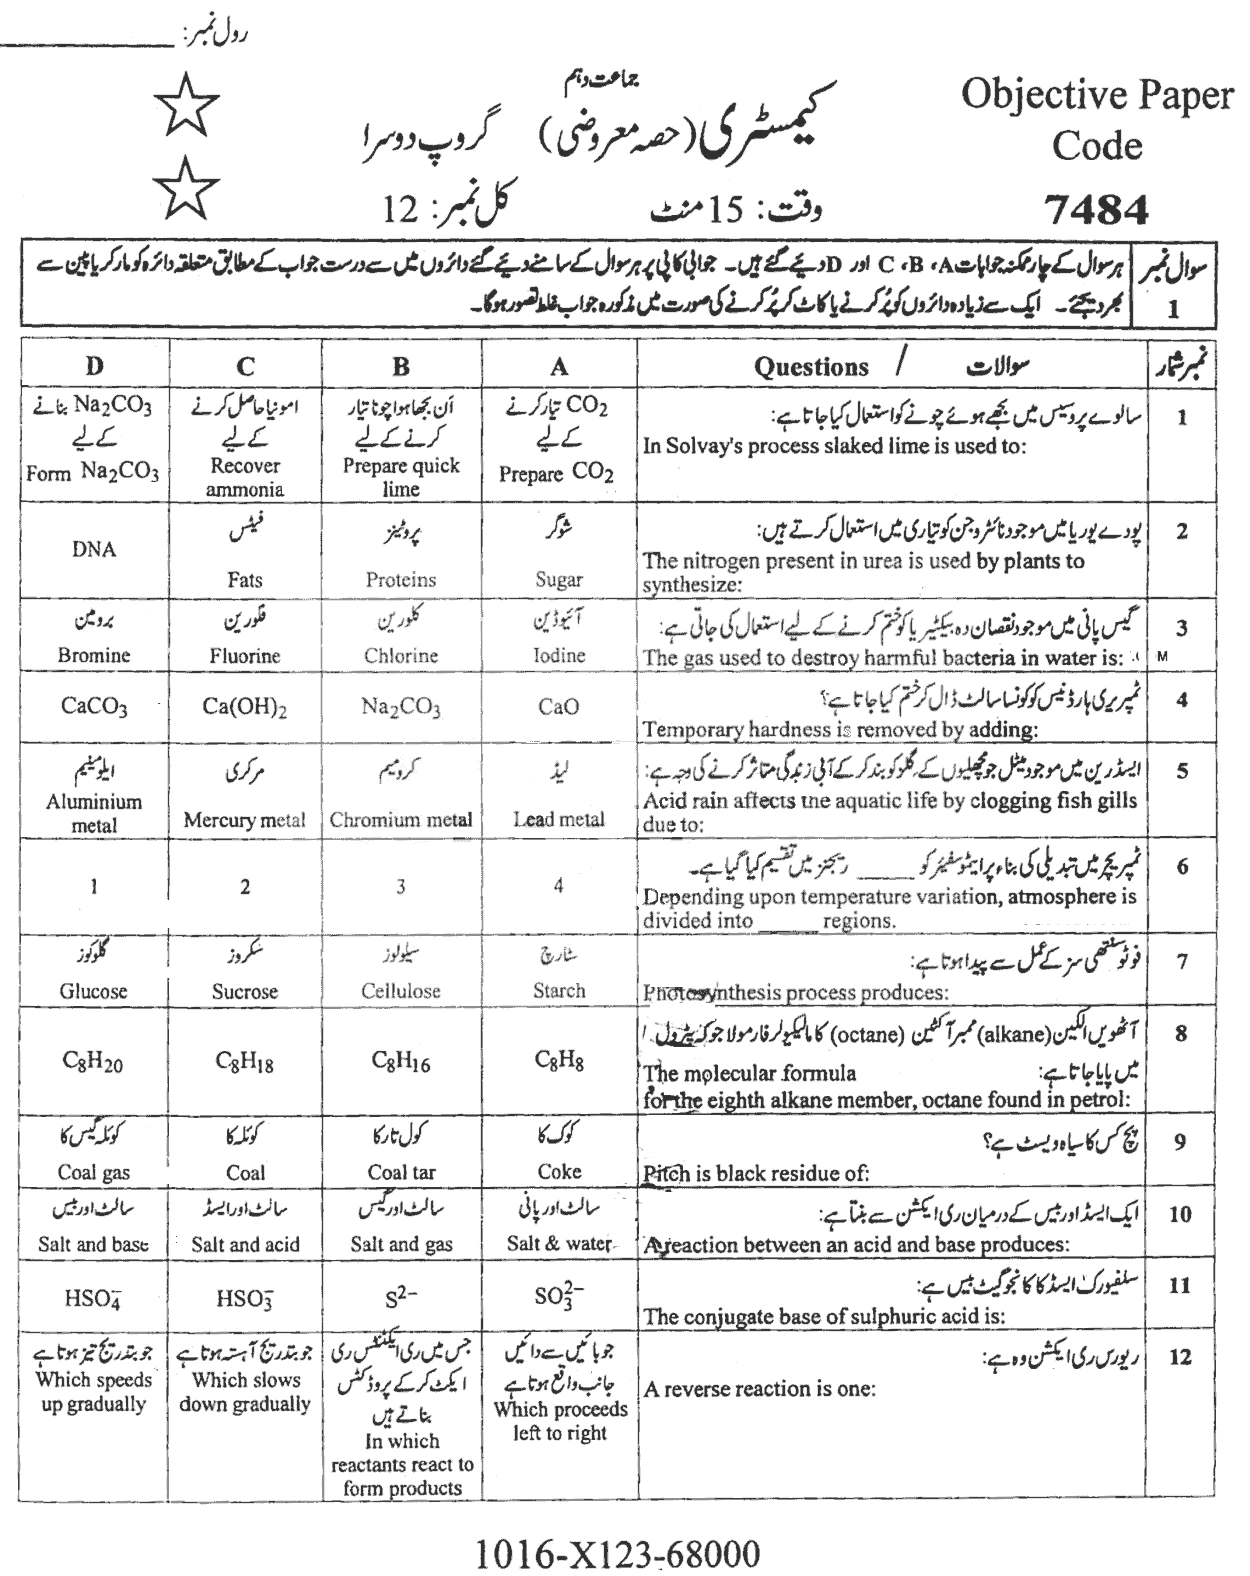 رول نمبر:
جماعت دہم
Objective Paper
Code
7484
کیمسٹری (حصہ معروضی) گروپ دوسرا
وقت: 15 منٹ کل نمبر: 12
سوال نمبر 1
ہر سوال کے چار ممکنہ جوابات A، B، C اور D دیئے گئے ہیں۔ جوابی کاپی پر ہر سوال کے سامنے دیئے گئے دائروں میں سے درست جواب کے مطابق متعلقہ دائرہ کو مارکر یا پین سے
بھر دیجئے۔ ایک سے زیادہ دائروں کو پُر کرنے یا کاٹ کر پُر کرنے کی صورت میں مذکورہ جواب غلط تصور ہوگا۔
نمبر شمار سوالات / Questions A B C D
1 سالوے پروسیس میں بجھے ہوئے چونے کو استعمال کیا جاتا ہے:
In Solvay's process slaked lime is used to:
CO₂ تیار کرنے
کے لیے
Prepare CO₂
اَن بجھا ہوا چونا تیار
کرنے کے لیے
Prepare quick
lime
امونیا حاصل کرنے
کے لیے
Recover
ammonia
Na₂CO₃ بنانے
کے لیے
Form Na₂CO₃
2 پودے یوریا میں موجود نائٹروجن کو تیاری میں استعمال کرتے ہیں:
The nitrogen present in urea is used by plants to
synthesize:
شوگر
Sugar
پروٹینز
Proteins
فیٹس
Fats
DNA
3 گیس پانی میں موجود نقصان دہ بیکٹیریا کو ختم کرنے کے لیے استعمال کی جاتی ہے:
The gas used to destroy harmful bacteria in water is:
M
آئیوڈین
Iodine
کلورین
Chlorine
فلورین
Fluorine
برومین
Bromine
4 ٹمپریری ہارڈنیس کو کونسا سالٹ ڈال کر ختم کیا جاتا ہے؟
Temporary hardness is removed by adding:
CaO
Na₂CO₃
Ca(OH)₂
CaCO₃
5 ایسڈ رین میں موجود میٹل جو مچھلیوں کے گلز کو بند کر کے آبی زندگی متاثر کرنے کی وجہ ہے:
Acid rain affects the aquatic life by clogging fish gills
due to:
لیڈ
Lead metal
کرومیم
Chromium metal
مرکری
Mercury metal
ایلومینیم
Aluminium
metal
6 ٹمپریچر میں تبدیلی کی بناء پر ایٹموسفیئر کو _____ ریجنز میں تقسیم کیا گیا ہے۔
Depending upon temperature variation, atmosphere is
divided into _____ regions.
4
3
2
1
7 فوٹو سنتھی سز کے عمل سے پیدا ہوتا ہے:
Photosynthesis process produces:
سٹارچ
Starch
سیلولوز
Cellulose
سکروز
Sucrose
گلوکوز
Glucose
8 آٹھویں الکین (alkane) ممبر آکٹین (octane) کا مالیکیولر فارمولا جو کہ پیٹرول
میں پایا جاتا ہے:
The molecular formula
for the eighth alkane member, octane found in petrol:
C₈H₈
C₈H₁₆
C₈H₁₈
C₈H₂₀
9 پچ کس کا سیاہ ویسٹ ہے؟
Pitch is black residue of:
کوک کا
Coke
کول تار کا
Coal tar
کوئلہ کا
Coal
کوئلہ گیس کا
Coal gas
10 ایک ایسڈ اور بیس کے درمیان ری ایکشن سے بنتا ہے:
A reaction between an acid and base produces:
سالٹ اور پانی
Salt & water
سالٹ اور گیس
Salt and gas
سالٹ اور ایسڈ
Salt and acid
سالٹ اور بیس
Salt and base
11 سلفیورک ایسڈ کا کانجوگیٹ بیس ہے:
The conjugate base of sulphuric acid is:
SO₃²⁻
S²⁻
HSO₃⁻
HSO₄⁻
12 ریورس ری ایکشن وہ ہے:
A reverse reaction is one:
جو بائیں سے دائیں
جانب واقع ہوتا ہے
Which proceeds
left to right
جس میں ری ایکٹنٹس ری
ایکٹ کر کے پروڈکٹس
بناتے ہیں
In which
reactants react to
form products
جو بتدریج آہستہ ہوتا ہے
Which slows
down gradually
جو بتدریج تیز ہوتا ہے
Which speeds
up gradually
1016-X123-68000